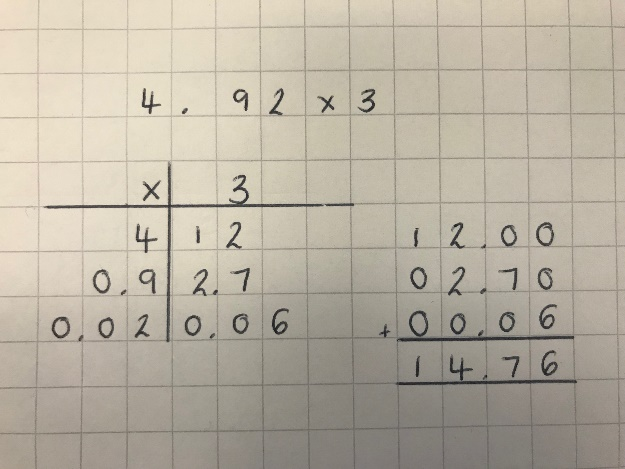 4.92 x 3
x 3
4 12
0.9 2.7
0.02 0.06
12.00
02.70
+ 00.06
14.76